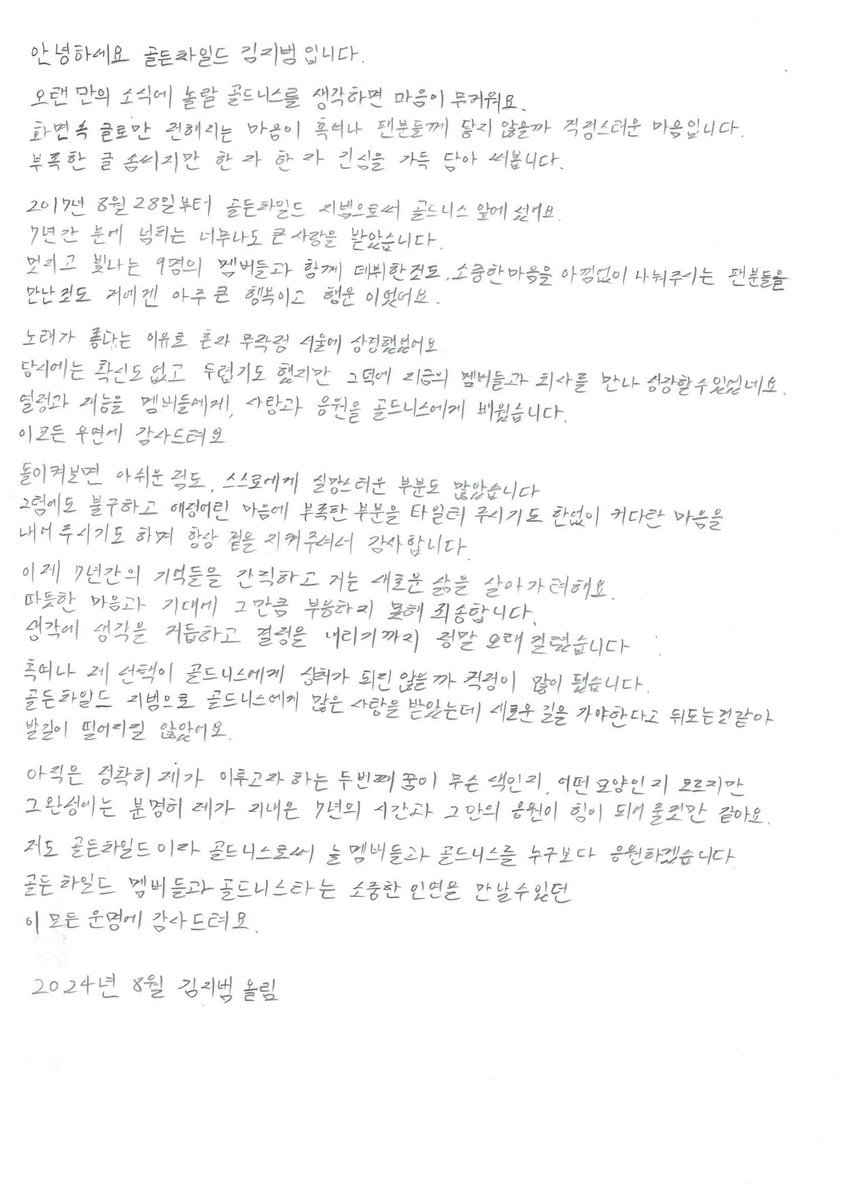 안녕하세요 골든차일드 김지범입니다.
오랜만의 소식에 놀랄 골드니스를 생각하면 마음이 무거워요.
화면속 글로만 전해지는 마음이 혹여나 팬분들께 닿지 않을까 걱정스러운 마음입니다.
부족한 글 솜씨지만 한 자 한 자 진심을 가득 담아 써봅니다.
2017년 8월 28일부터 골든차일드 지범으로써 골드니스 앞에 섰어요
7년간 분에 넘치는 너무나도 큰 사랑을 받았습니다.
멋지고 빛나는 9명의 멤버들과 함께 데뷔한것도, 소중한마음을 아낌없이 나눠주시는 팬분들을
만난것도 저에겐 아주 큰 행복이고 행운 이었어요.
노래가 좋다는 이유로 혼자 무작정 서울에 상경했었어요
당시에는 확신도 없고 두렵기도 했지만 그덕에 지금의 멤버들과 회사를 만나 성장할수있었네요.
열정과 재능을 멤버들에게, 사랑과 응원을 골드니스에게 배웠습니다.
이모든 우연에 감사드려요
돌이켜보면 아쉬운 점도, 스스로에게 실망스러운 부분도 많았습니다
그럼에도 불구하고 애정어린 마음에 부족한 부분을 타일러 주시기도 한없이 커다란 마음을
내어 주시기도 하며 항상 곁을 지켜주셔서 감사합니다.
이제 7년간의 기억들을 간직하고 저는 새로운 삶을 살아가려해요.
따뜻한 마음과 기대에 그만큼 부응하지 못해 죄송합니다.
생각에 생각을 거듭하고 결정을 내리기까지 정말 오래 걸렸습니다
혹여나 제 선택이 골드니스에게 상처가 되진 않을까 걱정이 많이 됐습니다.
골든차일드 지범으로 골드니스에게 많은 사랑을 받았는데 새로운 길을 가야한다고 뒤도는것같아
발길이 떨어지질 않았어요.
아직은 정확히 제가 이루고자 하는 두번째 꿈이 무슨 색인지, 어떤 모양인지 모르지만
그완성에는 분명히 제가 지내온 7년의 시간과 그만의 응원이 힘이 되어 줄것만 같아요.
저도 골든차일드이자 골드니스로써 늘 멤버들과 골드니스를 누구보다 응원하겠습니다
골든차일드 멤버들과 골드니스라는 소중한 인연을 만날수있던
이 모든 운명에 감사드려요.
2024년 8월 김지범 올림